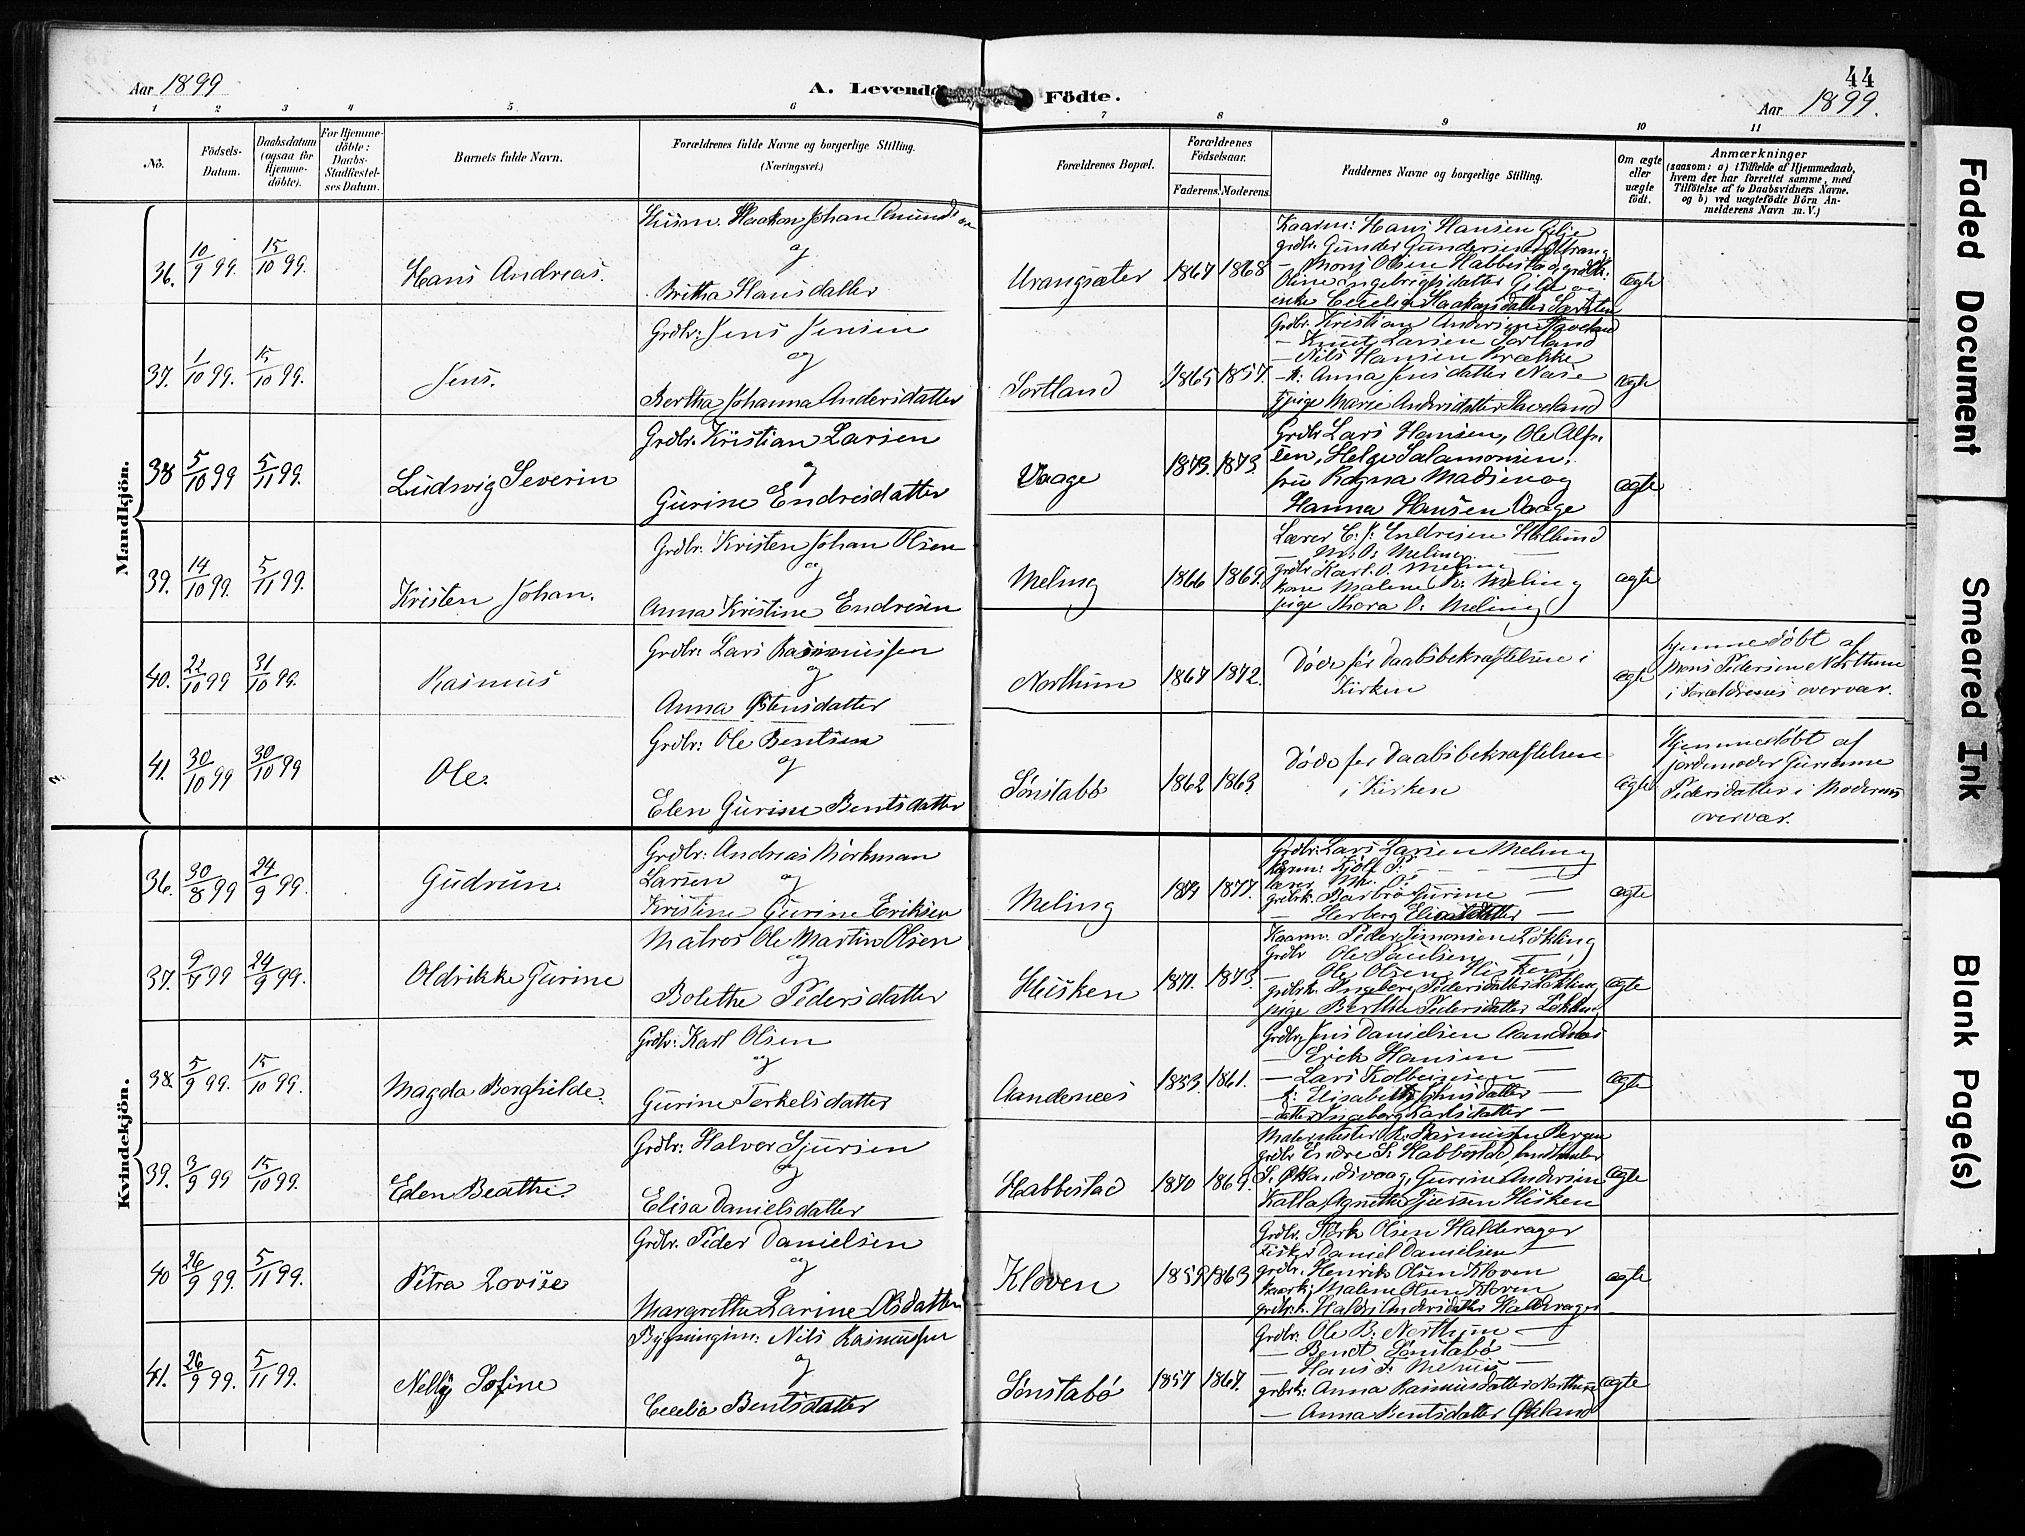 Aar 1899
A. Levende
Födte.
44
Aar 1899.
1 2 3 4 5 6 7 8 9 10 11
Nö.
Födsels-
Datum.
Daabsdatum
(ogsaa for
Hjemme-
döbte).
For Hjemme-
döbte:
Daabs-
Stadfæstel-
ses Datum.
Barnets fulde Navn.
Forældrenes fulde Navne og borgerlige Stilling.
(Næringsvei.)
Forældrenes Bopæl.
Forældrenes
Födselsaar.
Faderens.
Moderens.
Faddernes Navne og borgerlige Stilling.
Om ægte
eller
uægte
födt.
Anmærkninger
(saasom: a) i Tilfælde af Hjemmedaab,
hvem der har forrettet samme, med
Tilföielse af to Daabsvidners Navne.
og b) ved uægtefödte Börn An-
melderens Navn m. V.)
Mandkjön.
36. 10/9 99. 15/10 99. Hans Andreas.
Husm. Haakon Johan Amundsen
og
Britha Hansdatter
Urangsæter 1867 1868
Kaarm: Hans Hansen Gilje
grdbr. Gunder Gundersen
— Mons Olsen Habbestad,
Oline Ingebrigtsdatter Gilje og
enke Cecilie Haakonsdatter
ægte
37. 1/10 99. 15/10 99. Jens.
Grdbr: Jens Jensen
og
Bertha Johanna Andersdatter
Sortland 1865 1857.
Grdbr. Kristian Andersen
— Knut Larsen Sortland
— Nils Hansen Brække
—k: Anna Jensdatter Næse
pige Marie Andersdatter
ægte
38 5/10 99 5/11 99. Ludvig Severin
Grdbr. Kristian Larsen
og
Gurine Endresdatter
Vaage 1873. 1873.
Grdbr Lars Hansen, Ole Alf-
sen, Helge Salamonsen,
fru Ragna Madsen og
Hanna Hansen Vaage
ægte
39. 14/10 99. 5/11 99. Kristen Johan.
Grdbr: Kristen Johan Olsen
og
Anna Kristine Endresen
Meling 1866 1869.
Lærer E. J. Endresen Hollund
— M. O. Meling —
grdbr Karl O. Meling
kone Malene K: Meling
pige Thora O: Meling
ægte
40. 22/10 99 31/10 99. Rasmus
Grdbr: Lars Rasmussen
og
Anna Østensdatter
Northun 1867 1872.
Døde før Daabsbekræftelsen i
Kirken
ægte
Hjemmedøbt af
Mons Pedersen Northun
i Forældrenes overvær.
41. 30/10 99 30/10 99 Ole.
Grdbr: Ole Bentsen
og
Elen Gurine Bentsdatter
Sønstabø 1862 1863.
Døde før Daabsbekræftelsen
i Kirken
ægte
Hjemmedøbt af
jordemoder Gurianne
Pedersdatter i Moderens
overvær.
Kvindekjön.
36. 30/8 99 24/9 99. Gudrun.
Grdbr: Andreas Mørkman
Larsen og
Kristine Gurine Eriksen
Meling 1871 1877.
Grdbr: Lars Larsen Meling
grdbrk. Barbro Gurine —
— Herborg Elisabeth —
ægte
37. 9/9 99 24/9 99. Oldrikke Gurine
Matros Ole Martin Olsen
og
Bolethe Pedersdatter
Husken 1871. 1873.
Kaarm. Peder Simonsen Løkling
Grdbr Ole Paulsen —
— Ole Olsen Hisken
grdbrk. Ingeborg Pedersdatter Løkling
pige Berthe Pedersdatter Løkling
ægte
38. 5/9 99. 15/10 99. Magda Borghilde.
Grdbr: Karl Olsen
og
Gurine Terkelsdatter
Aandernees 1853. 1861.
Grdbr. Jens Danielsen Aandnæs
— Erik Hansen —
— Lars Kolbeinsen —
—k: Elisabeth Johnsdatter —
— datter Ingeborg Larsdatter —
ægte
39. 3/9 99 15/10 99. Elen Beathe.
Grdbr: Halvor Sjursen
og
Elisa Danielsdatter
Habbestad 1870 1869.
Malermester R. Rasmussen Bergen
grdbr Endre S. Habbestad, landhandler
S. Øklandsvaag, Gurine Andersen
Katla, Agnethe Sjursen Hisken
ægte
40 26/9 99. 5/11 99. Petra Lovise
Grdbr. Peder Danielsen
og
Margrethe Larine Olsdatter
Kloven 1859 1863
Grdbr. Størk Olsen Halderager
Fisker Daniel Danielsen —
grdbr. Henrik Olsen Kloven
kaark: Malene Olsen Kloven
grdbrk. Andersdatter Halderager
ægte
41. 26/9 99. 5/11 99. Nelly Sofine
Bygningsm: Nils Rasmussen
og
Cecelia Bentsdatter
Sønstabø 1857 1867.
Grdbr: Ole B. Northun —
— Bendt Sønstabø —
— Hans F. —
grbrk: Anna Rasmusdatter Northun
— Anna Bentsdatter Økland
ægte
Faded Document
Smeared Ink
Blank Page(s)